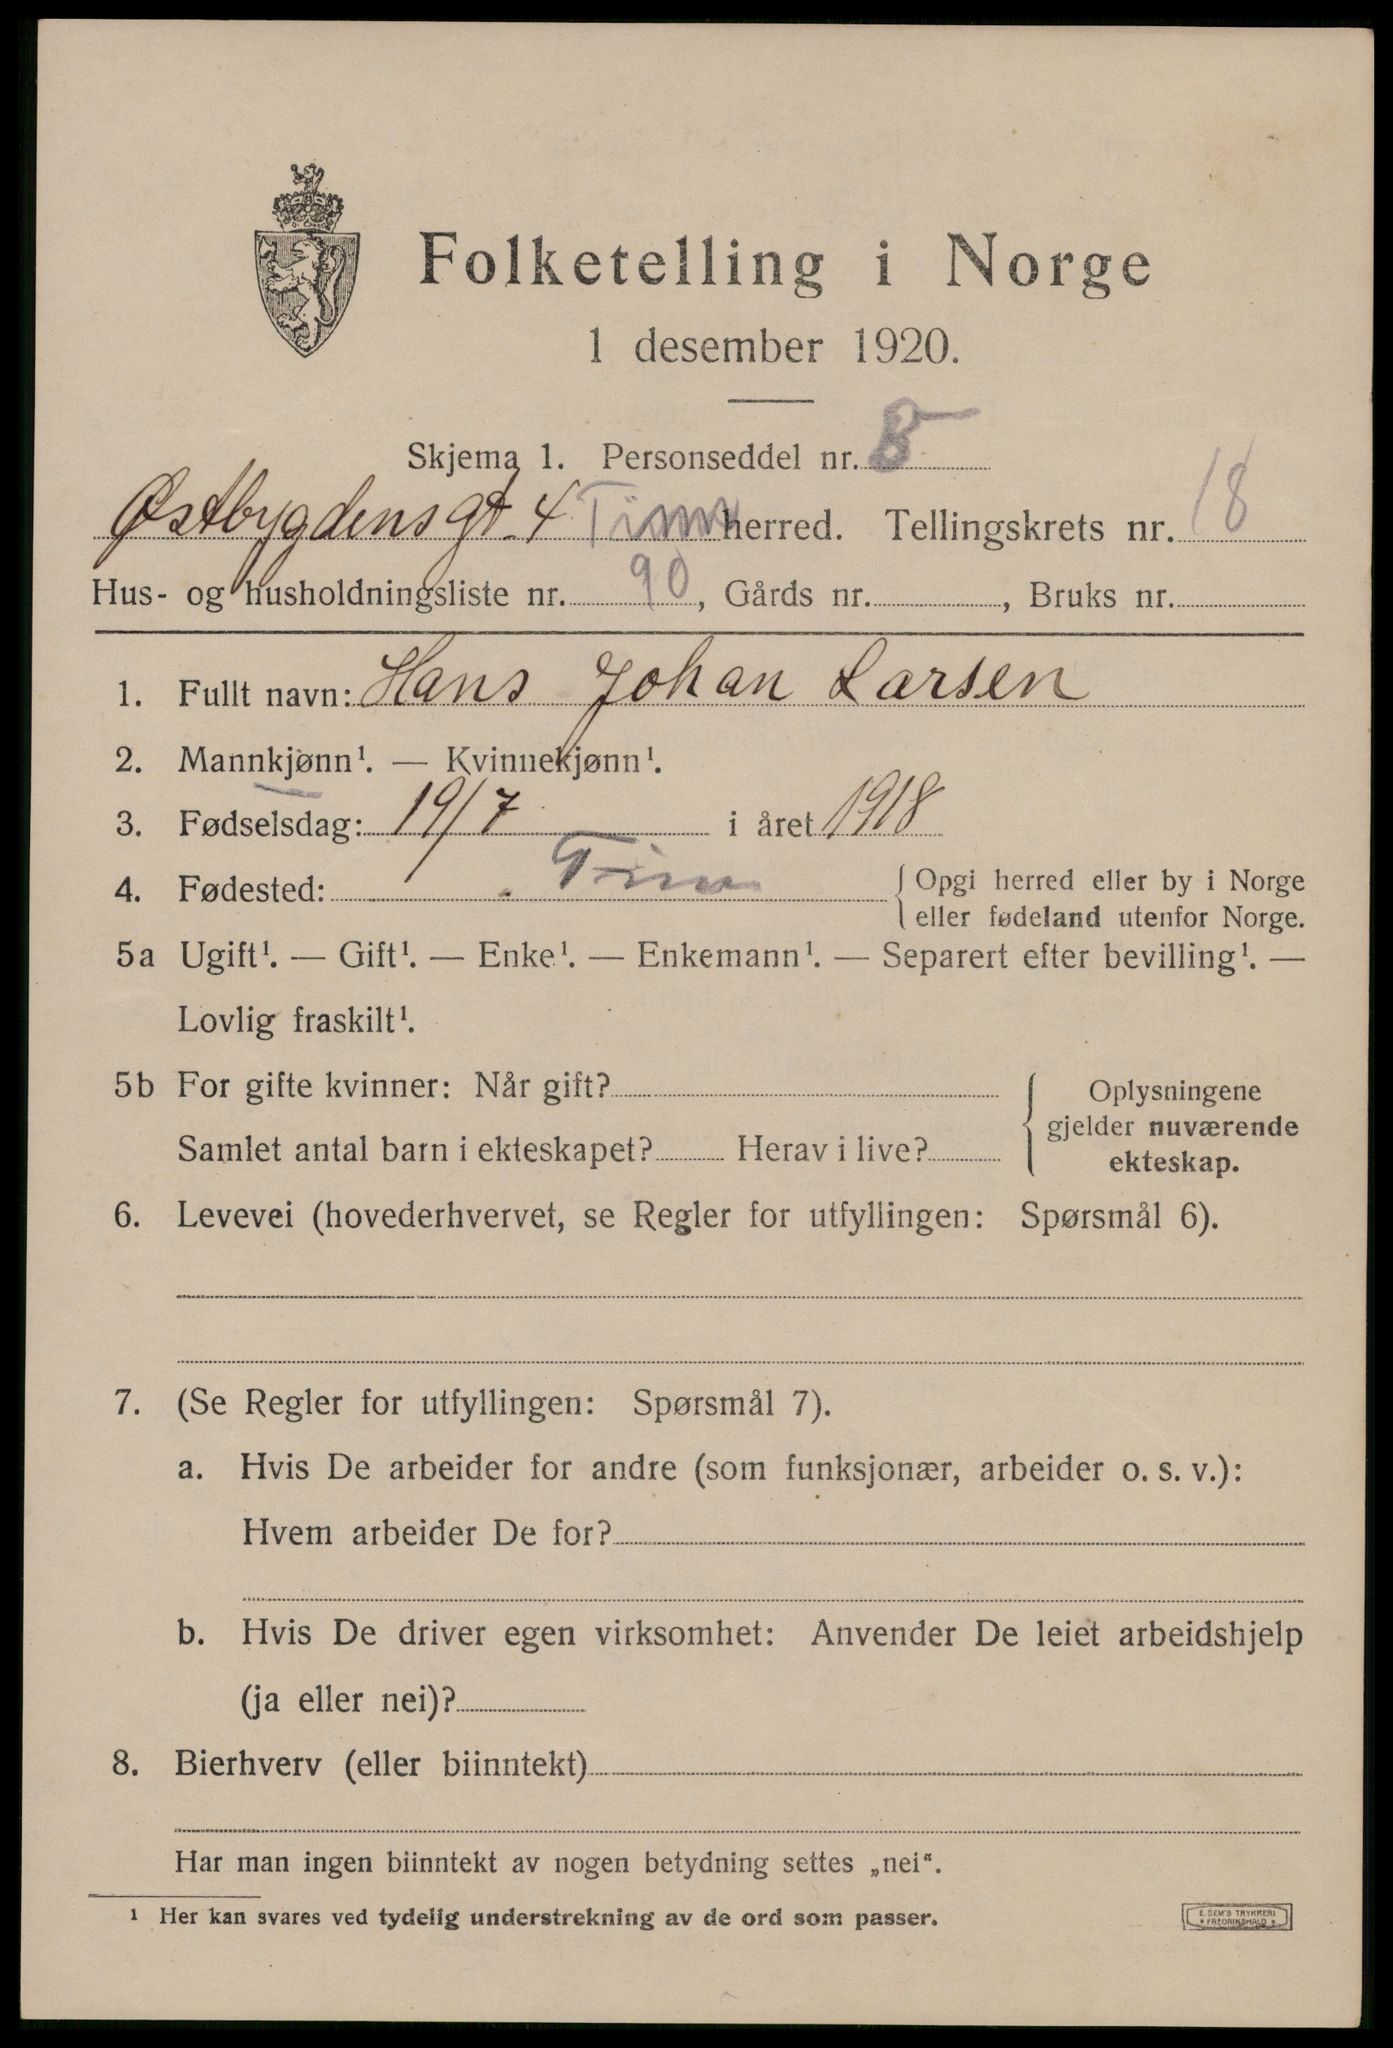 Folketelling i Norge
1 desember 1920.
Skjema 1. Personseddel nr.
Østbygdens gt. 4 Tinn herred. Tellingskrets nr. 18
Hus- og husholdningsliste nr. 90, Gårds nr. , Bruks nr.
1. Fullt navn: Hans Johan Larsen
2. Mannkjønn¹. — Kvinnekjønn¹.
3. Fødselsdag: 19/7 i året 1918
4. Fødested: Tinn { Opgi herred eller by i Norge
eller fødeland utenfor Norge.
5a Ugift¹. — Gift¹. — Enke¹. — Enkemann¹. — Separert efter bevilling¹. —
Lovlig fraskilt¹.
5b For gifte kvinner: Når gift? { Oplysningene
gjelder nuværende
Samlet antal barn i ekteskapet? Herav i live?
ekteskap.
6. Levevei (hovederhvervet, se Regler for utfyllingen: Spørsmål 6).
7. (Se Regler for utfyllingen: Spørsmål 7).
a. Hvis De arbeider for andre (som funksjonær, arbeider o. s. v.):
Hvem arbeider De for?
b. Hvis De driver egen virksomhet: Anvender De leiet arbeidshjelp
(ja eller nei)?
8. Bierhverv (eller biinntekt)
Har man ingen biinntekt av nogen betydning settes „nei“.
¹ Her kan svares ved tydelig understrekning av de ord som passer.
E. SEM'S TRYKKERI
* FREDRIKSHALD *